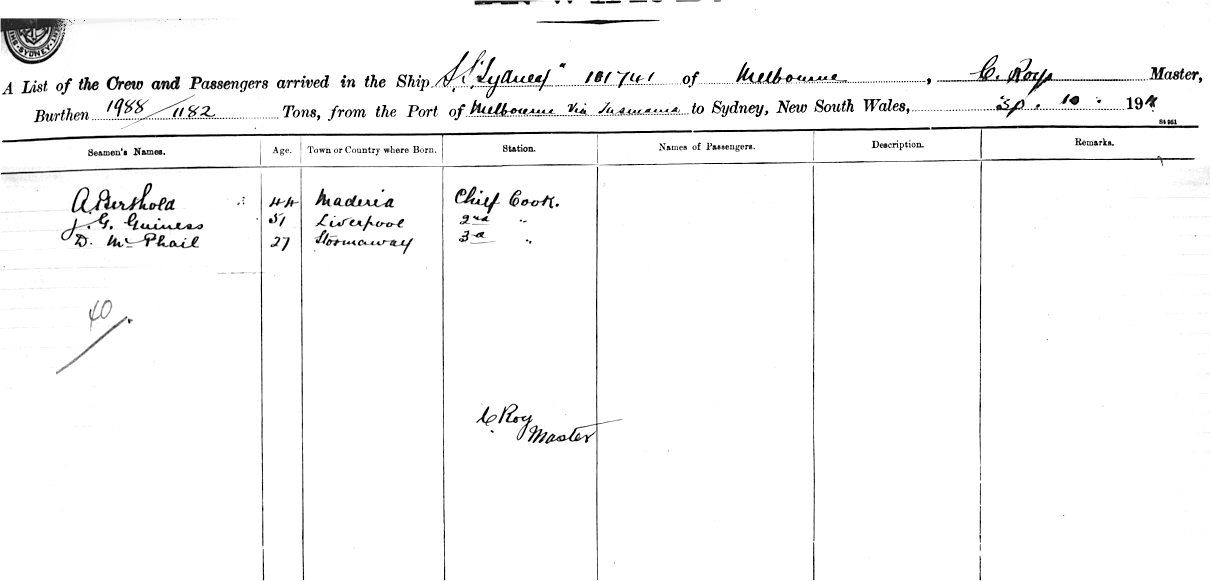 SYDNEY
A List of the Crew and Passengers arrived in the Ship S.S. "Sydney" 101741 of Melbourne, C. Roy Master,
Burthen 1988/1182 Tons, from the Port of Melbourne via Tasmania to Sydney, New South Wales, 10. 19
St 951
Seamen's Names. Age. Town or Country where Born. Station. Names of Passengers. Description. Remarks.
A. Berthold 44 Maderia Chief Cook.
J. G. Guiness 51 Liverpool 2nd "
D. McPhail 27 Stornaway 3d "
40
C Roy
Master